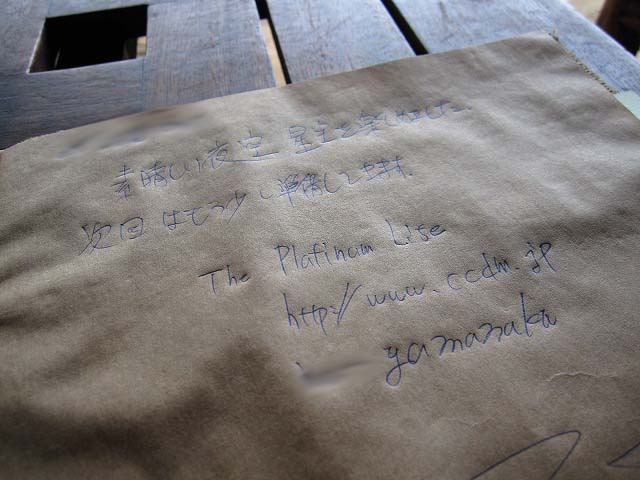 素晴しい夜空 星空を楽しめました。
次回はもう少し準備してきます。
The Platinum Lise
http://www.ccdm.jp
yamanaka